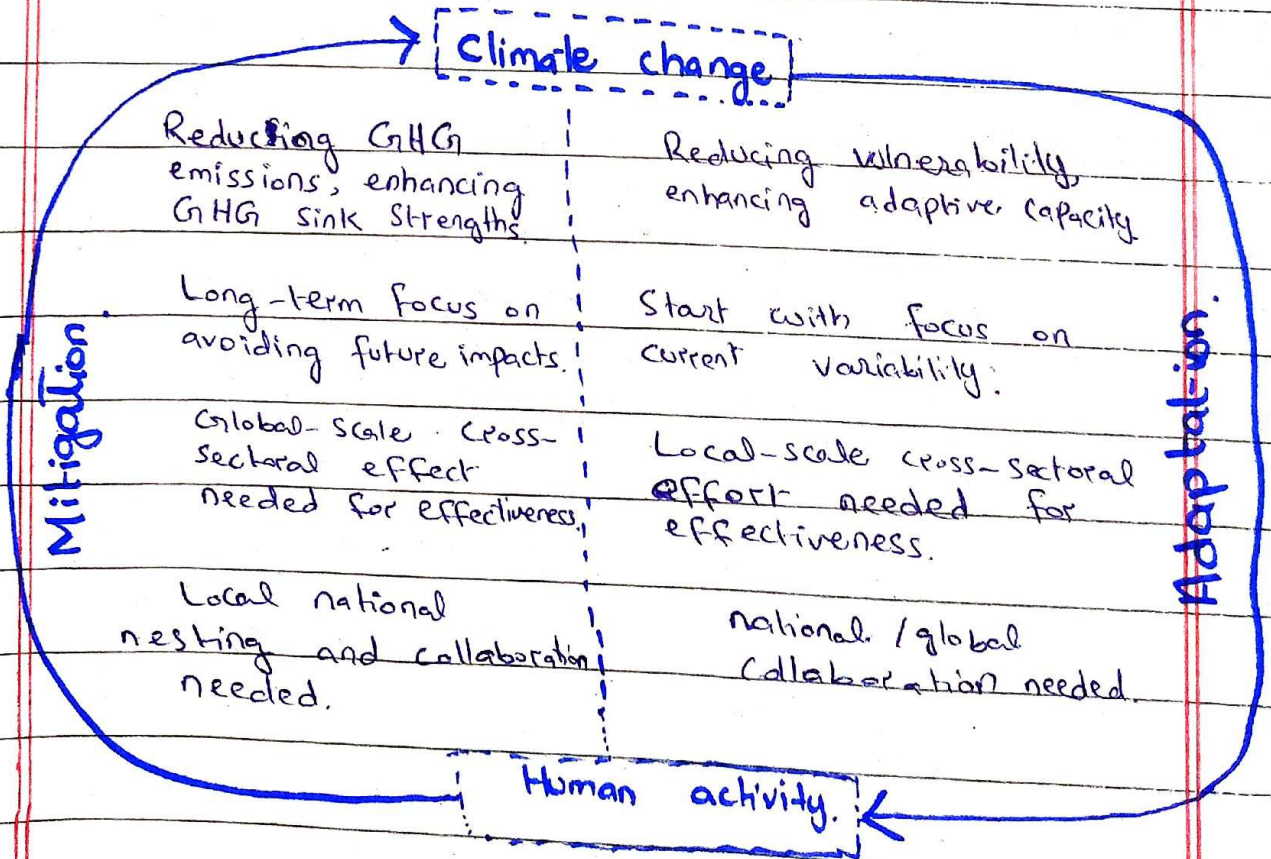 Climate change
Reducing GHG
emissions, enhancing
GHG sink strengths.
Long-term focus on
avoiding future impacts.
Global-scale cross-
sectoral effect
needed for effectiveness.
Local national
nesting and collaboration
needed.
Reducing vulnerability,
enhancing adaptive capacity
Start with focus on
current variability.
Local-scale cross-sectoral
effort needed for
effectiveness.
national / global
collaboration needed.
Mitigation.
Adaptat-ion.
Human activity.